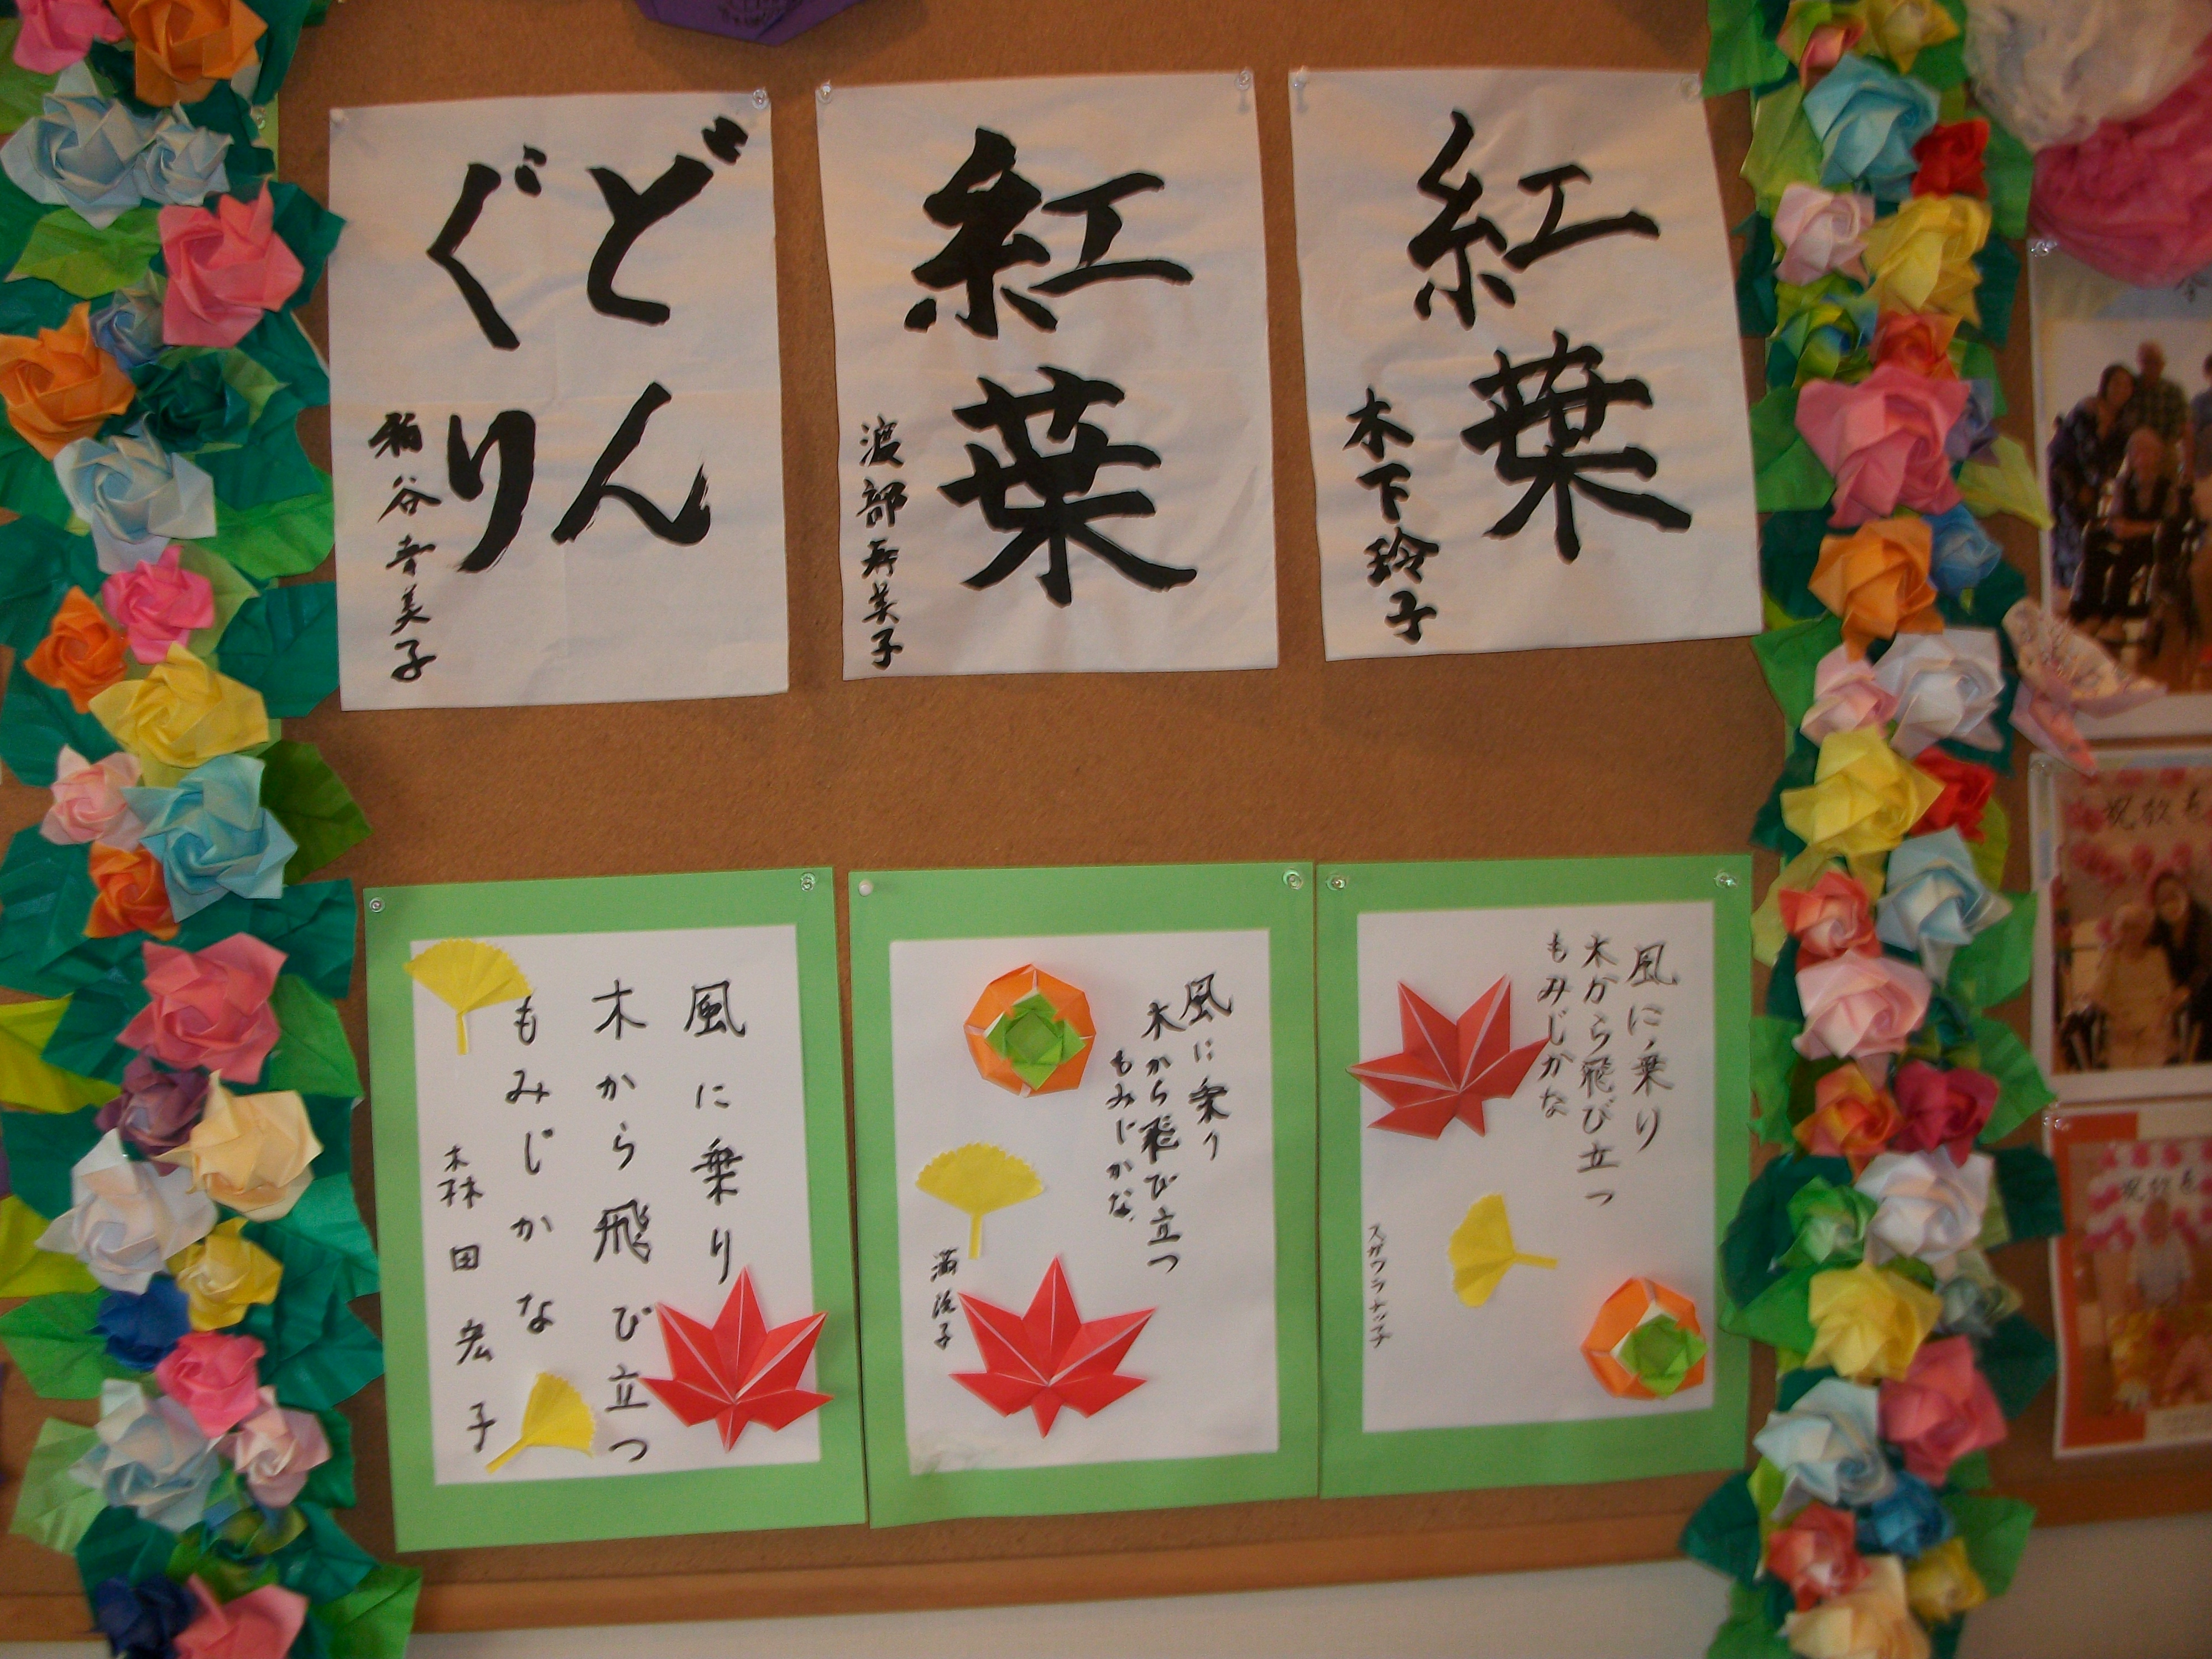 紅葉
木下玲子
紅葉
渡部寿美子
どん
ぐり
粕谷幸美子
風に乗り
木から飛び立つ
もみじかな
スガワラナツ子
風に乗り
木から飛び立つ
もみじかな
風に乗り
木から飛び立つ
もみじかな
森田宏子